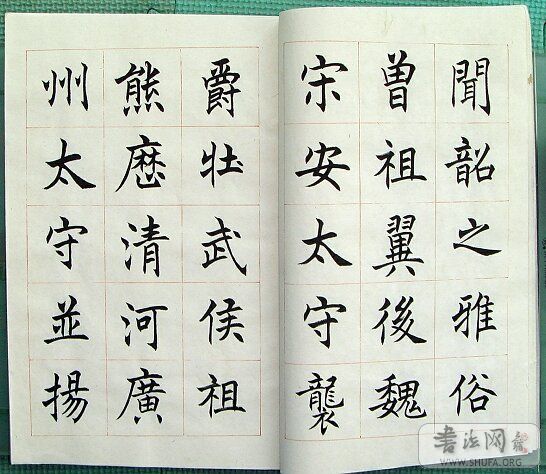 聞韶之雅俗
曾祖翼後魏
宋安太守襲
爵壮武侯祖
熊歷清河廣
州太守並揚
书法网
WWW.SHUFA.ORG